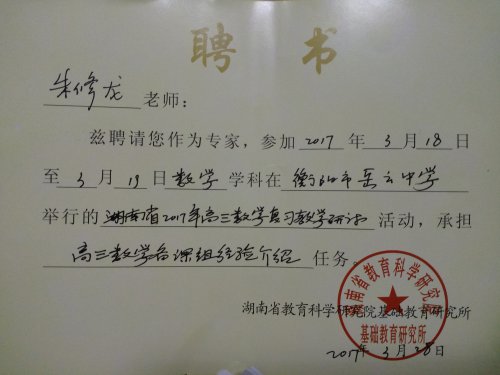 聘书
朱修龙 老师：
兹聘请您作为专家，参加 2017 年 3 月 18 日
至 3 月 19 日 数学 学科在 衡阳市岳云中学
举行的 湖南省2017年高三数学复习教学研讨 活动，承担
高三数学备课组经验介绍 任务。
湖南省教育科学研究院基础教育研究所
2017年 3 月 28 日
湖南省教育科学研究院
基础教育研究所